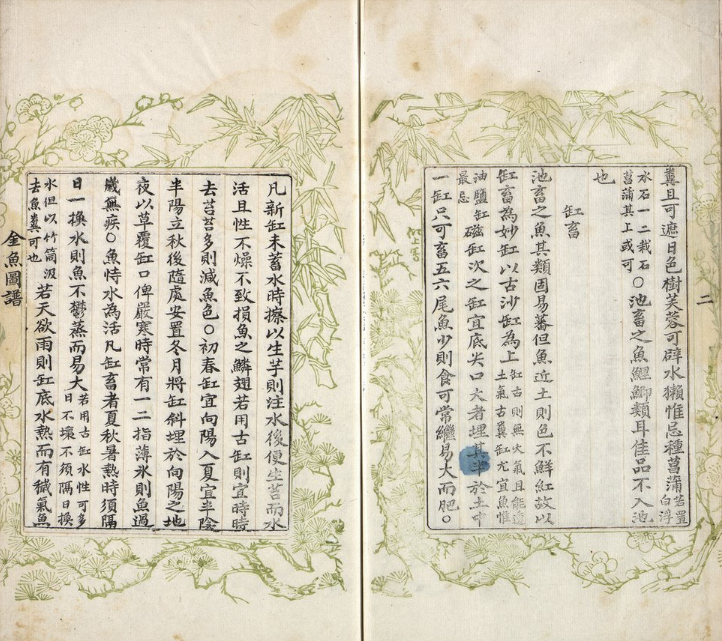 二
糞且可遮日色樹芙蓉可辟水獺惟忌種菖蒲若置白浮
水石一二栽石菖蒲其上或可〇池畜之魚鯉鯽類耳佳品不入池
也
缸畜
池畜之魚其類固易蕃但魚近土則色不鮮紅故以
缸畜為妙缸以古沙缸為上缸古則無火氣且能
土氣古糞缸尤宜魚惟
油鹽缸最忌磁缸次之缸宜底尖口大者埋其半於土中
一缸只可畜五六尾魚少則食可常繼易大而肥〇
凡新缸未蓄水時擦以生芋則注水後便生苔而水
活且性不燥不致損魚之鱗翅若用古缸則宜時時
去苔苔多則減魚色〇初春缸宜向陽入夏宜半陰
半陽立秋後隨處安置冬月將缸斜埋於向陽之地
夜以草覆缸口俾嚴寒時常有一二指薄氷則魚過
歲無疾〇魚恃水為活凡缸畜者夏秋暑熱時須隔
日一換水則魚不鬱蒸而易大若用古缸水性可多日不壞不須隔日換
水但以竹筒汲去魚糞可也若天欲雨則缸底水熱而有穢氣魚
金魚圖譜